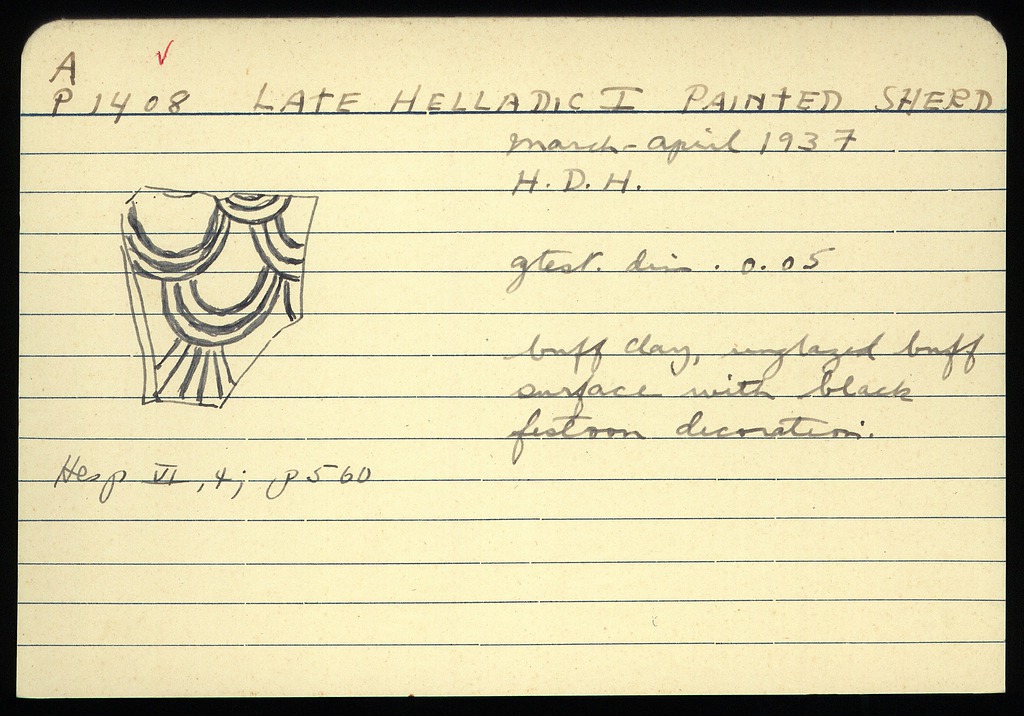 A
P 1408 LATE HELLADIC I PAINTED SHERD
March-April 1937
H. D. H.
gtest. dim. 0.05
buff clay, unglazed buff
surface with black
festoon decoration.
Hesp VI, 4; p 560